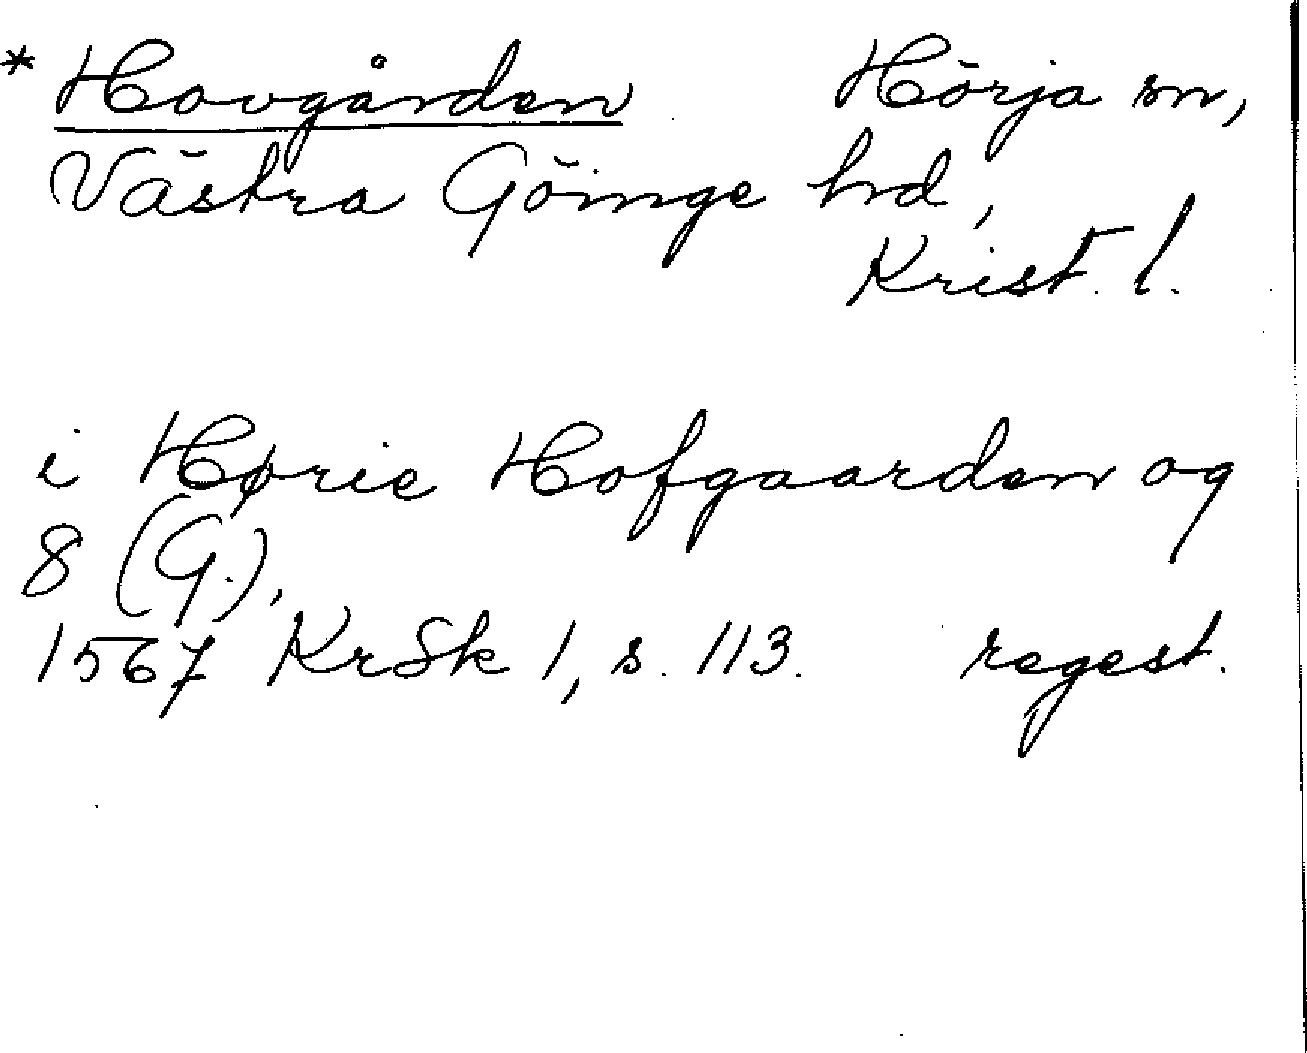 * Hovgården Hörja sn,
Västra Göinge hd,
Krist. l.
i Hørie Hofgaarden og
8 (G.),
1567 KrSk 1, s. 113. regest.